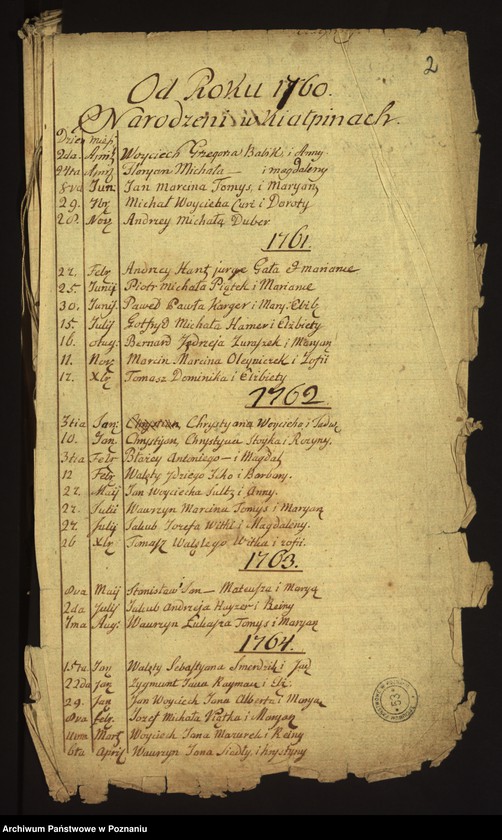 2
Od Roku 1760.
Narodzeni w Kiałpinach.
Dzień miąs.
2da. April Woyciech Grzegorza Babik i Anny.
24ta April Floryan Michała i magdaleny
8va Jun. Jan Marcina Tomys, i Maryan
29. 7br Michał Woycieba Curi i Doroty
28. Nov Andrzey Michała Duber
1761.
22. Febr Andrzey Hant jurge Gała et marianie
25. Junij Piotr Michała Piątek i Marianie
30. Junij. Paweł Pawła Karger i Mary. Elżb
15. Julij Gotfryd Michała Hamer i Elżbiety
16. aug: Bernard Jędrzeja Zuraszek i Maryan
11. Nov Marcin Marcina Oleyniczek i Zofii
12. Xbr Tomasz Dominika i Elżbiety
1762
3tia Jan: Chrystyana Woyciecha i Jadw
10. Jan Chrystyan, Chrystyana Stoyka i Rozyny.
3tia Febr Błażey Antoniego — i Magdal
12 Febr Walęty Idziego i Barbary.
22. Maij Jan Woyciecha Sultz i Anny.
22. Julii Wawrzyn Marcina Tomys i Maryan
27. Julij Jakub Jozefa Witki i Magdaleny.
26 Xbr Tomasz Walętego Witka i zofii.
1763.
8va Maij Stanisław Jan — Mateusza i Marya
2da Julij Jakub Andrzeja Kayzer i Reiny
7ma Aug: Wawrzyn Łukasza Tomys i Maryan
1764.
15ta. Jan Walęty Sebastyana Smerdzik i Jad
22da Jan Zygmunt Jana Rayman i Elż.
29. Jan Jan Woyciech Jana Alberta i Marya
8va Febr. Jozef Michała Piątka i Maryan
Mart Woyciech Jana Mazurek i Reiny
6ta April Wawrzyn Jana Siedly i Krystyny
53
Archiwum Państwowe w Poznaniu